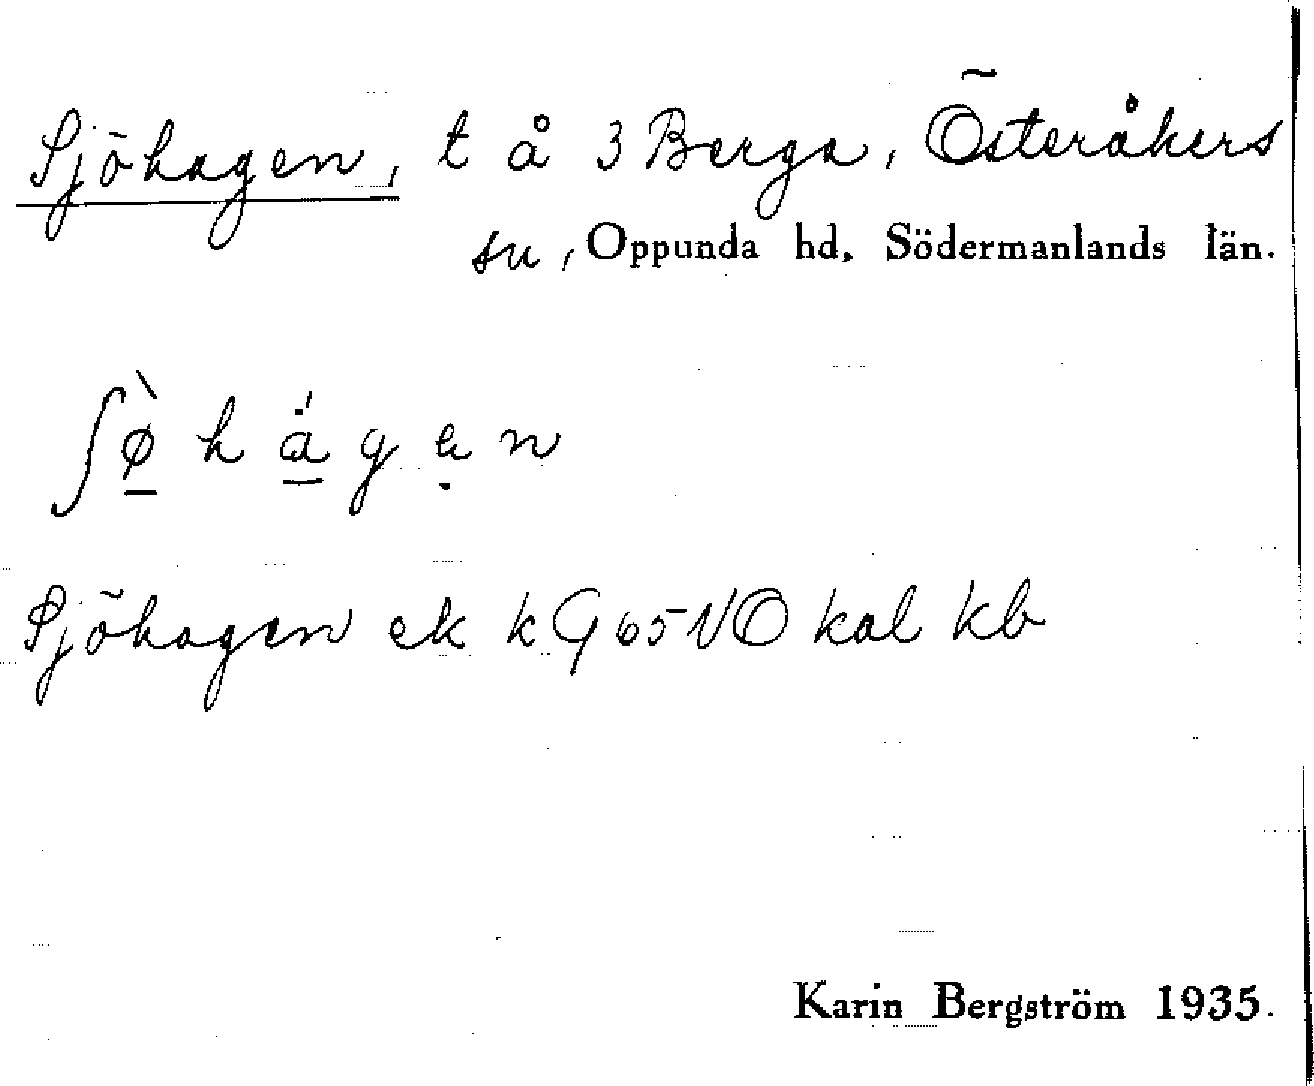 Sjöhagen, t å 3 Berga, Österåkers
sn, Oppunda hd. Södermanlands län.
ʃø̠̀ h a̠̍ g ạ n
Sjöhagen ek k G 65 NO kal kb
Karin Bergström 1935.